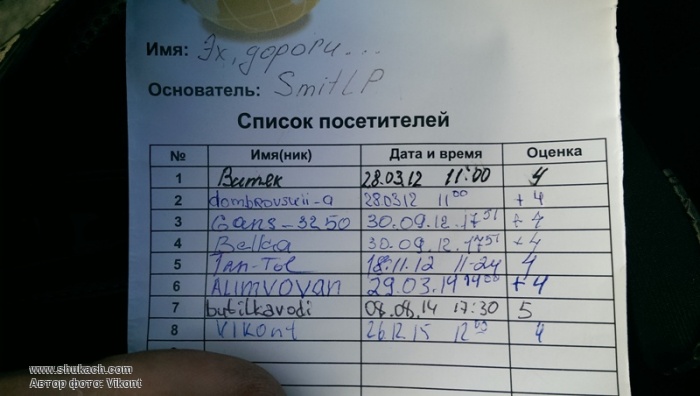 Имя: Эх, дороги...
Основатель: SmitLP
Список посетителей
№ Имя(ник) Дата и время Оценка
1 Витек 28.03.12 11:00 4
2 dombrovskii-a 280312 11 00 +4
3 Gans-3250 30.09.12. 17 51 +4
4 Belka 30.09.12. 17 51 +4
5 Tan-Tol 18.11.12 11-24 4
6 ALIMVOVAN 29.03.14 14 00 +4
7 butilkavodi 08.08.14 17:30 5
8 VIKont 26.12.15 12 03 4
www.shukach.com
Автор фото: Vikont